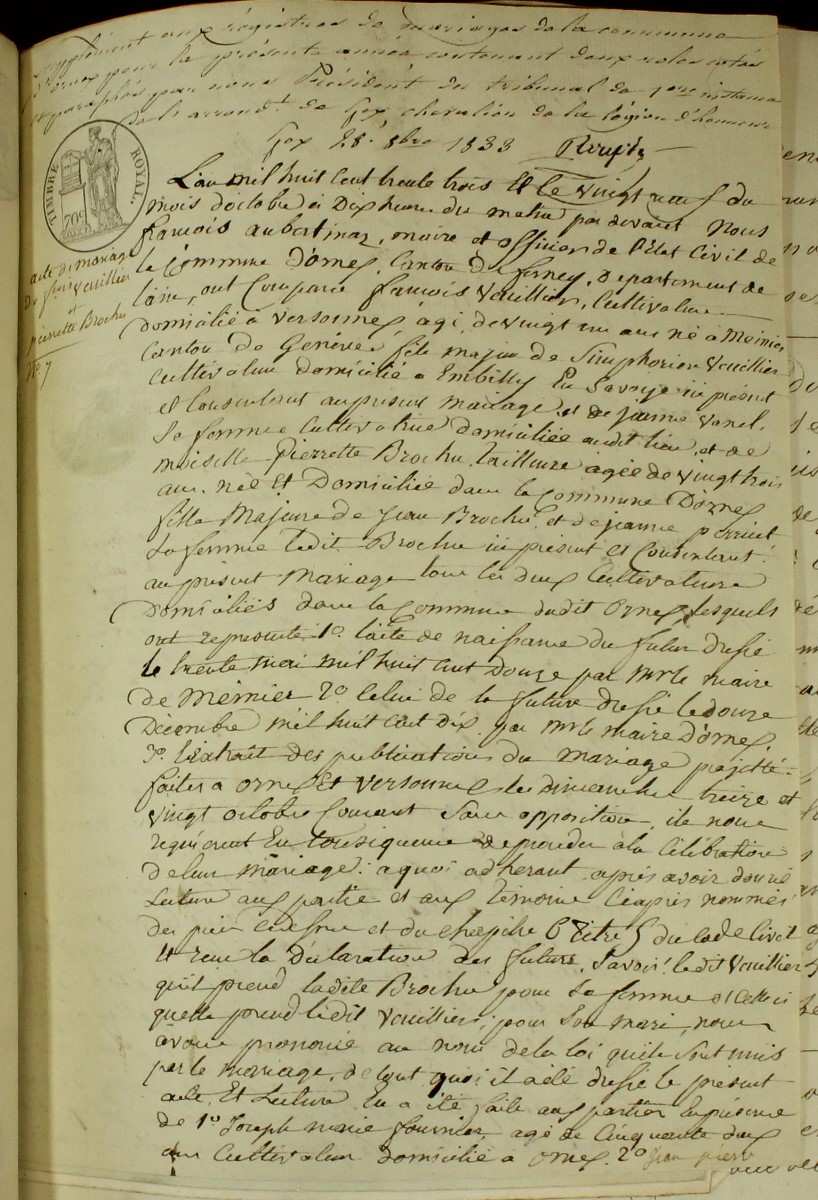 Supplément aux régistres de mariages de la commune
d'Ornex pour la présente année contenant deux roles cotés
et paraphés par nous Président du tribunal de 1ere instance
de l'arrondt. de Gex, chevalier de la légion d'honneur
Gex 28. 8bre 1833
TIMBRE ROYAL
70c
acte de mariage
de fçois Vuillier
et
pierrette Brochu
No 7
L'an mil huit cent trente trois et le vingt neuf du
mois d'octobre à dix heures du matin par devant Nous
françois aubertinaz, maire et officier de l'Etat Civil de
la Commune D'ornex, Canton de ferney, département de
l'ain, ont Comparu françois Vuillier, Cultivateur
domicilié à Versonnex, agé de vingt un ans né à Meinier
Canton de Genève, fils majeur de Simphorien Vuillier
Cultivateur domicilié à Embilly En Savoye ici présent
et Consentent au présent mariage et de jeanne Vanel,
Sa femme Cultivatrice domiciliée audit lieu, et de
moiselle Pierrette Brochu, tailleuse agée de vingt trois
ans. née Et Domiciliée dans la Commune D'ornex
fille Majeure de jean Brochu, et de jeanne perrinet
Sa femme ledit Brochu ici présent et Consentent
au présent Mariage tous les deux Cultivateurs
Domiciliés dans la Commune dudit Ornex, lesquels
ont représenté 1o. l'acte de naissance du futur dressé
le trente mai mil huit cent douze par Mr le maire
de Meinier 2o Celui de la future dressé le douze
Décembre mil huit cent dix par Mr le maire D'ornex,
3o. l'Extrait des publications du mariage projetté
faites à ornex Et Versonnex les dimanches treize et
vingt octobre Courant Sans opposition, ils nous
requièrent En Conséquence de proceder à la Célébration
de leur mariage: a quoi adherant après avoir donné
Lecture aux partie et aux témoins Ciaprès nommés
des pièces et du Chapitre 6 titre 5 du Code Civil
Et reçu la Déclaration des futurs, Savoir: ledit Vuillier
qu'il prend ladite Brochu pour Sa femme et Celleci
quelle prend ledit Vuillier, pour Son mari, nous
avons prononcé au nom de la loi quils Sont unis
par le mariage, de tout quoi il a été dressé le présent
acte. Et Lecture En a été faite aux parties En présence
de 1o Joseph marie fournier, agé de Cinquante deux
ans Cultivateur domicilié à ornex. 2o jean pierre